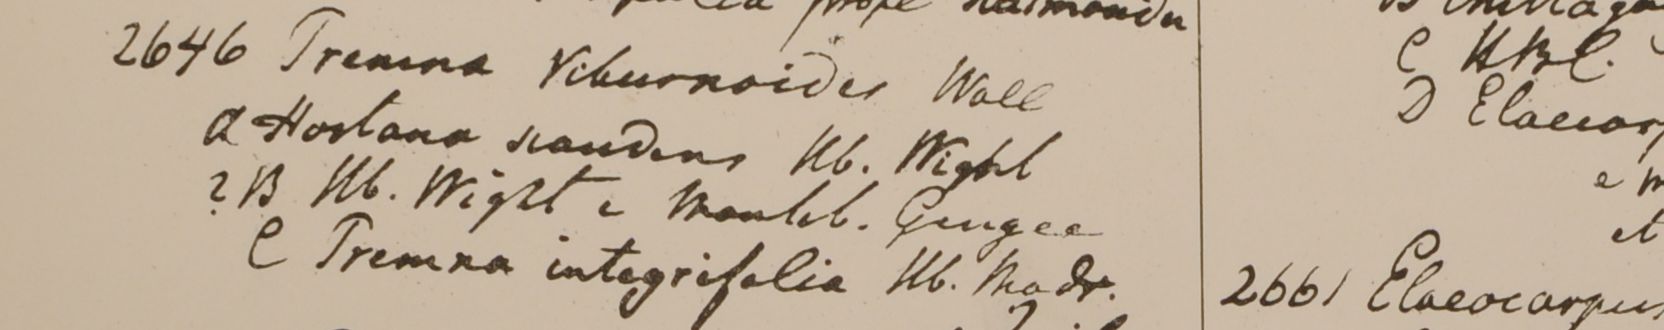 prope
2646 Premna Viburnoides Wall
A Hostana scandens Hb. Wight
? B Hb. Wight e Montib. Gingee
C Premna integrifolia Hb. Madr.
C HBC.
D Elaeocarp
e m
et
2661 Elaeocarpus